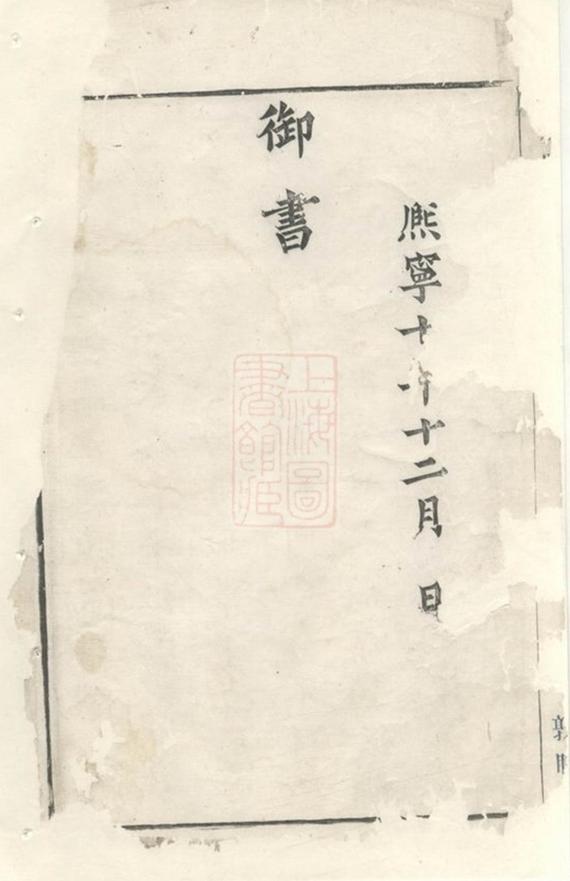 熈寧十年十二月　日
御書
上海圖
書館藏